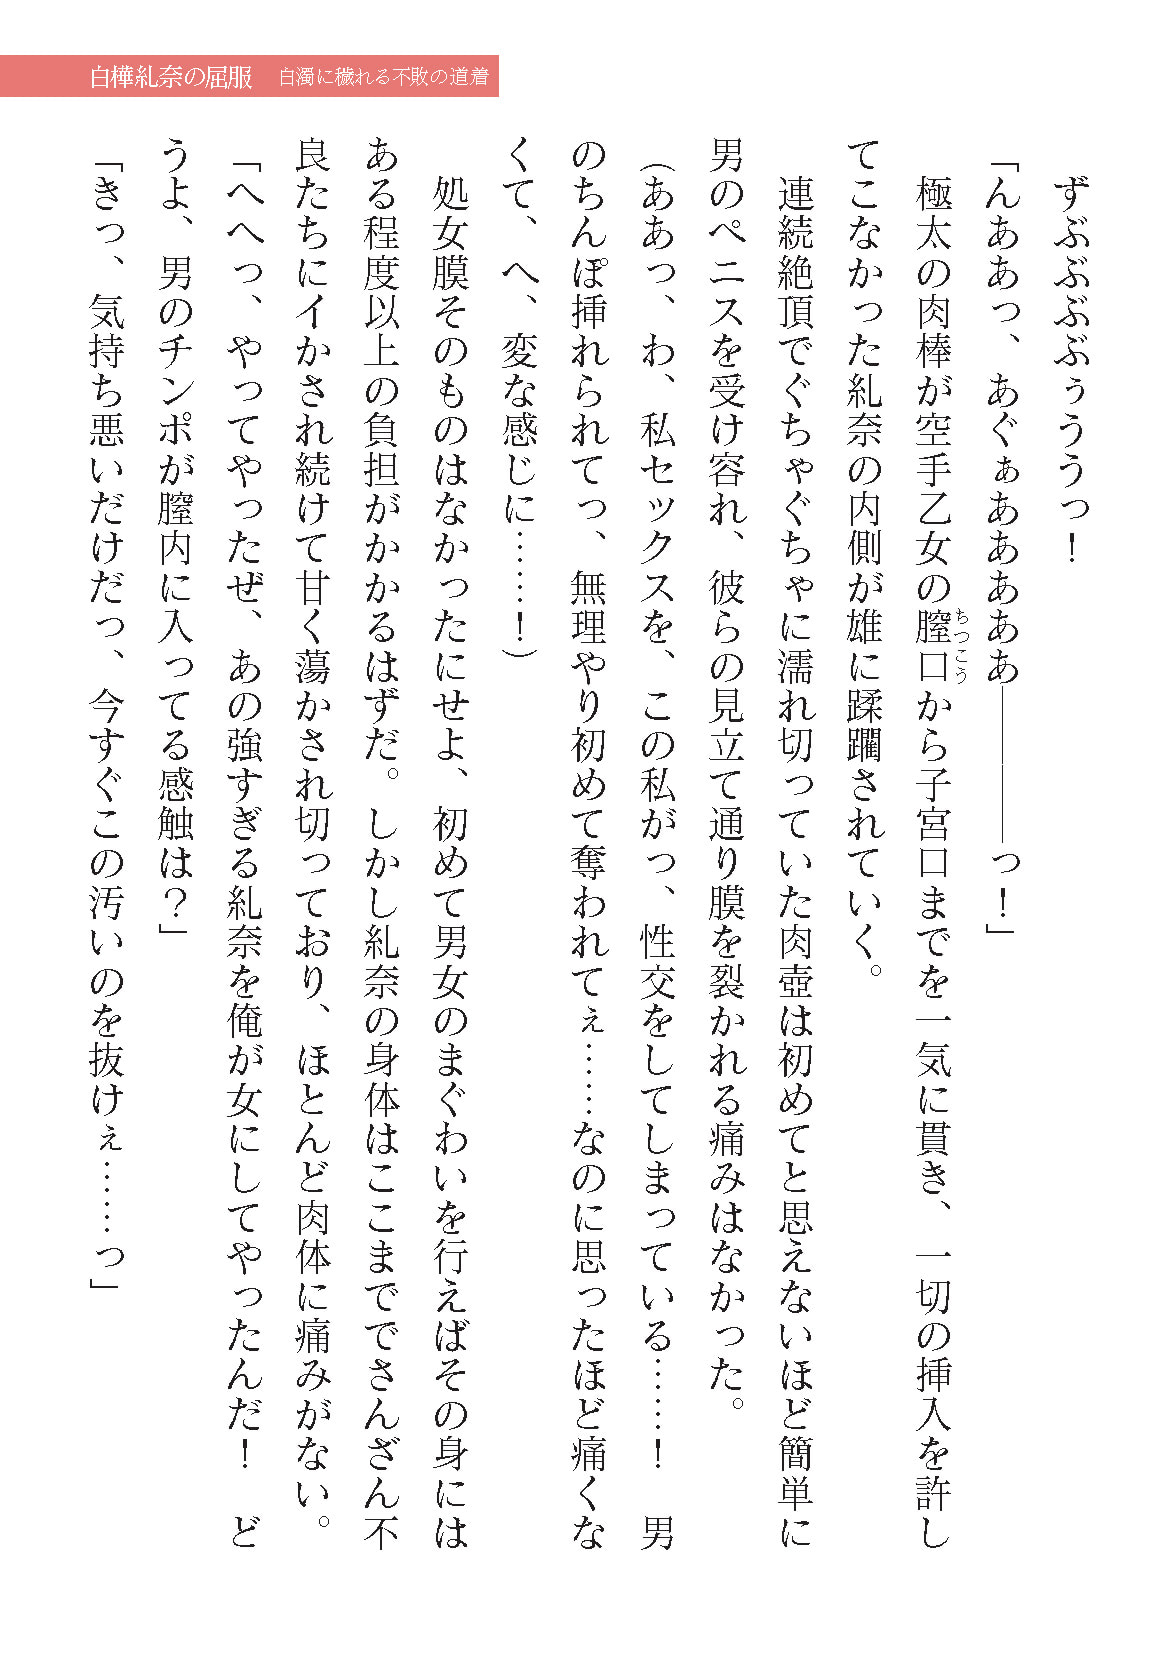 白樺糺奈の屈服　白濁に穢れる不敗の道着
ずぶぶぶぶぅううっ！
「んああっ、あぐぁあああああ――――っ！」
極太の肉棒が空手乙女の膣口から子宮口までを一気に貫き、一切の挿入を許し
ちつこう
てこなかった糺奈の内側が雄に蹂躙されていく。
連続絶頂でぐちゃぐちゃに濡れ切っていた肉壺は初めてと思えないほど簡単に
男のペニスを受け容れ、彼らの見立て通り膜を裂かれる痛みはなかった。
（ああっ、わ、私セックスを、この私がっ、性交をしてしまっている……！　男
のちんぽ挿れられてっ、無理やり初めて奪われてぇ……なのに思ったほど痛くな
くて、へ、変な感じに……！）
処女膜そのものはなかったにせよ、初めて男女のまぐわいを行えばその身には
ある程度以上の負担がかかるはずだ。しかし糺奈の身体はここまででさんざん不
良たちにイかされ続けて甘く蕩かされ切っており、ほとんど肉体に痛みがない。
「へへっ、やってやったぜ、あの強すぎる糺奈を俺が女にしてやったんだ！　ど
うよ、男のチンポが膣内に入ってる感触は？」
「きっ、気持ち悪いだけだっ、今すぐこの汚いのを抜けぇ……っ」